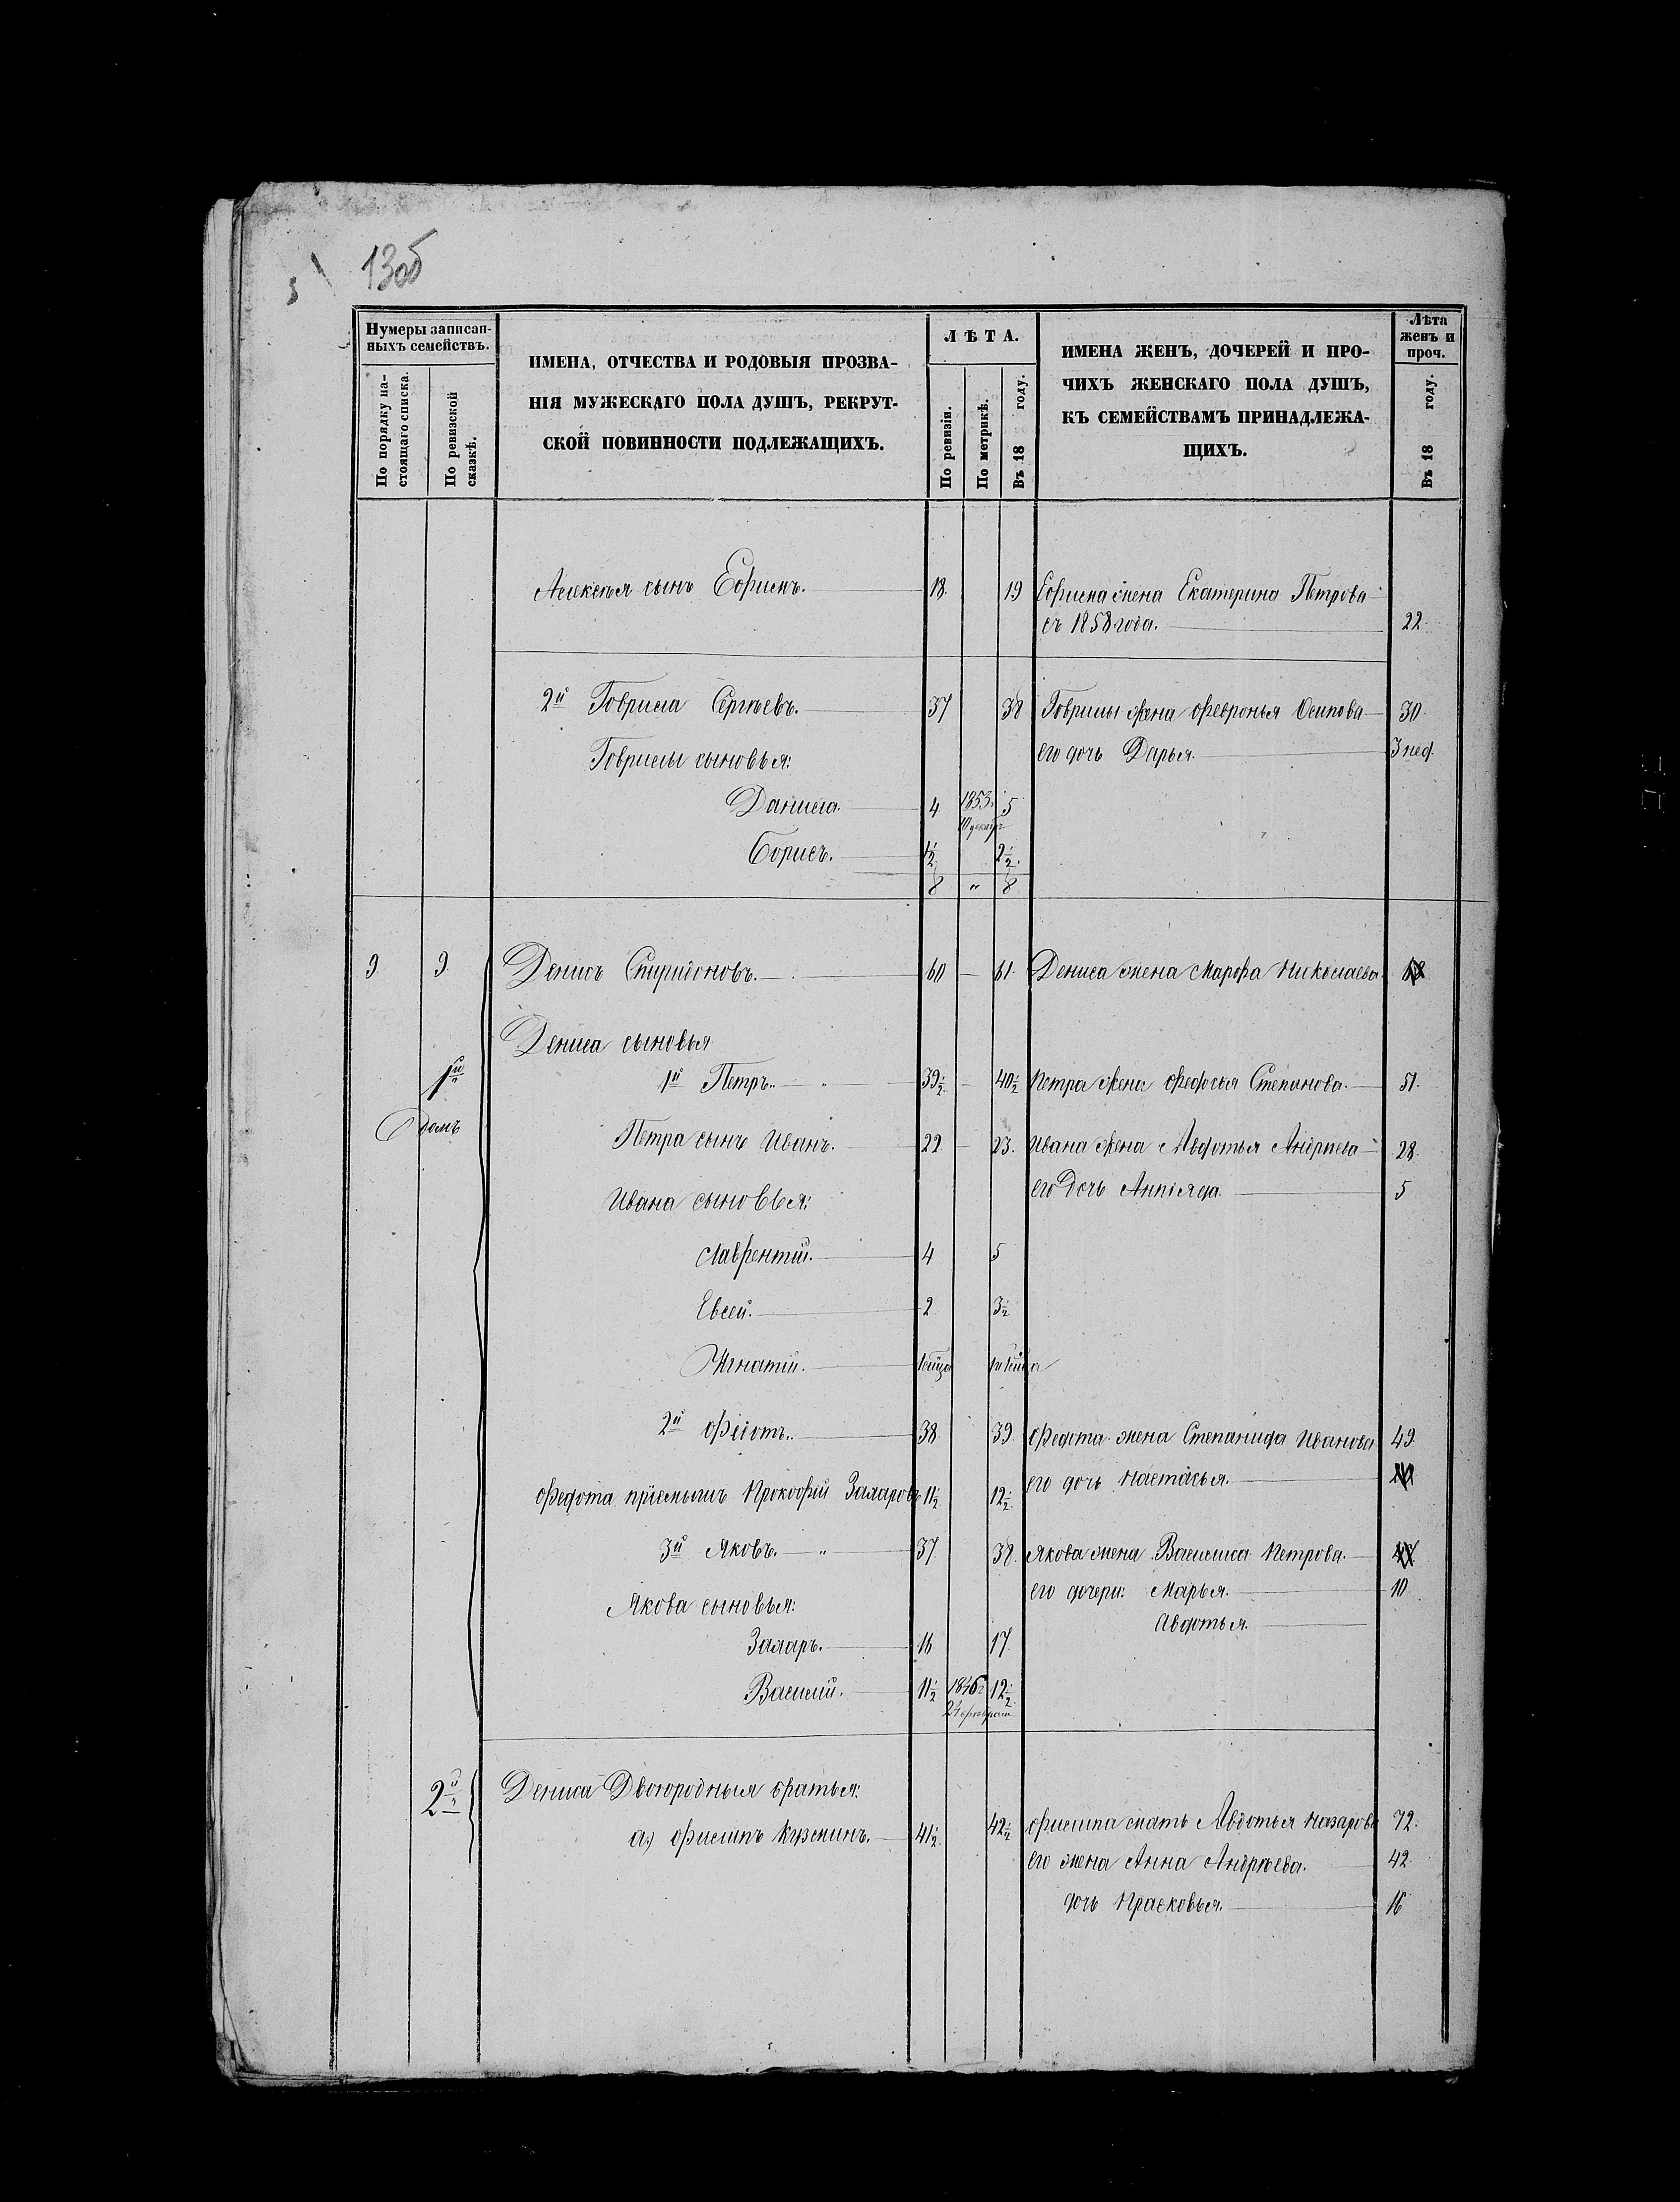 13об
Нумеры записан-
ныхъ семействъ.
По порядку на-
стоящаго списка.
По ревизской
сказкѣ.
ИМЕНА, ОТЧЕСТВА И РОДОВЫЯ ПРОЗВА-
НІЯ МУЖЕСКАГО ПОЛА ДУШЪ, РЕКРУТ-
СКОЙ ПОВИННОСТИ ПОДЛЕЖАЩИХЪ.
ЛѢТА.
По ревизіи.
По метрикѣ.
Въ 18 году.
ИМЕНА ЖЕНЪ, ДОЧЕРЕЙ И ПРО-
ЧИХЪ ЖЕНСКАГО ПОЛА ДУШЪ,
КЪ СЕМЕЙСТВАМЪ ПРИНАДЛЕЖА-
ЩИХЪ.
Лѣта
женъ и
проч.
Въ 18 году.
Алексѣя сынъ Ефимъ. 18. 19 Ефима жена Екатерина Петрова
съ 1858 года. 22.
2й Гаврила Сергѣевъ. 37 38 Гаврилы жена Февронья Осипова 30.
Гаврилы сыновья: его дочь Дарья. 3 нед.
Данила. 4 1853г. 5
10 декабр
Борисъ. 1/2 2 1/2.
8 " 8
9 9 Денисъ Спиридоновъ. 60 61. Дениса жена Марфа Николаева
Дениса сыновья
1й 1й Петръ. 39 1/2 40 1/2 Петра жена Федосья Степанова. 51.
домъ Петра сынъ Иванъ. 22 23. Ивана жена Авдотья Андриева 28.
Ивана сыновья: его дочь 5
Лаврентій. 4 5
Евсей. 2 3 1/2
Игнатій.
2й 38 39. Федота жена Степанида Иванова 49.
Федота пріемышъ Прокофій Захаровъ 11 1/2 12 1/2. его дочь Настасья.
3й Яковъ. " 37 38. Якова жена Василиса Петрова.
Якова сыновья: его дочери: Марья. 10
Авдотья.
Захаръ. 16 17.
Василій. 11 1/2 1846г 12 1/2.
24 февраля
2й Дениса Двоюродныя братья:
а) Филипъ Кузминъ. 41 1/2. 42 1/2 Филипа мать Авдотья Назарова 72.
его жена Анна Андрѣева. 42.
дочь Прасковья. 16